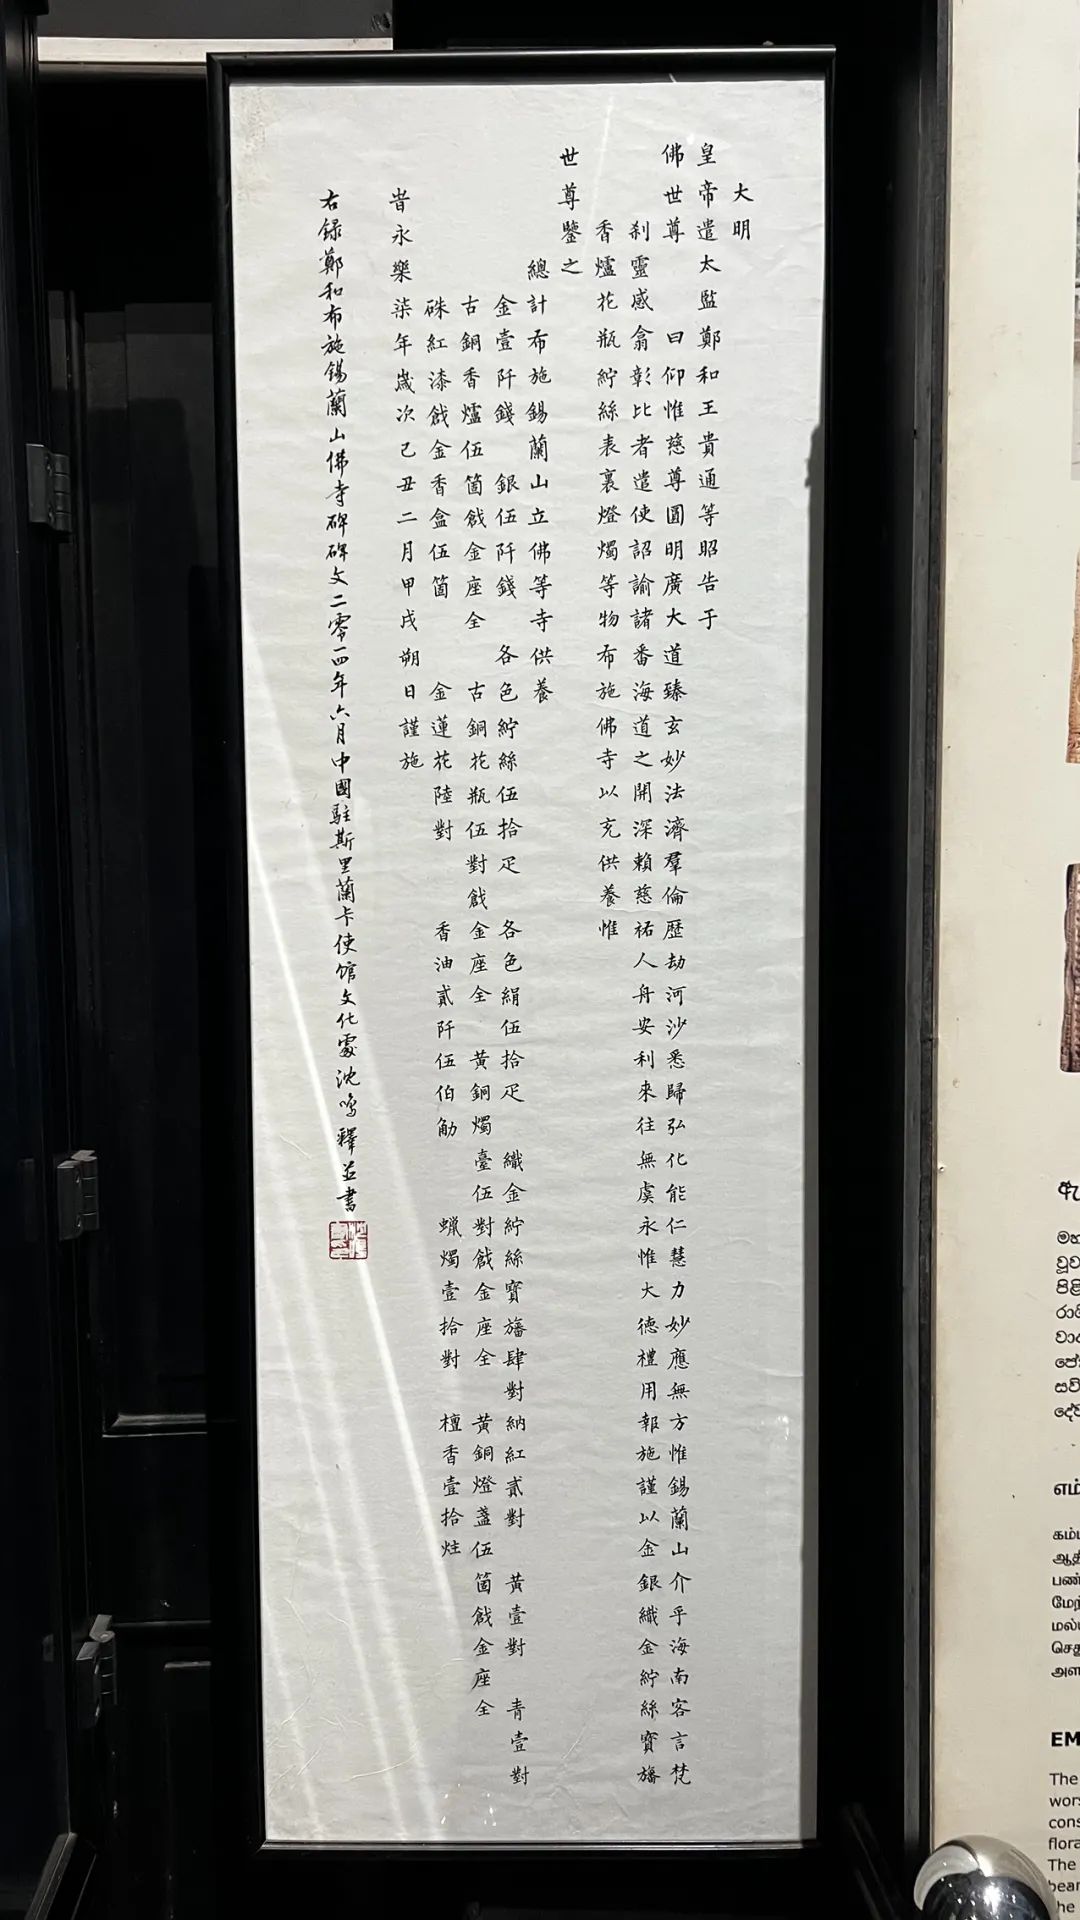 大明
皇帝遣太監鄭和王貴通等昭告于
佛世尊 曰仰惟慈尊圓明廣大道臻玄妙法濟羣倫歷劫河沙悉歸弘化能仁慧力妙應無方惟錫蘭山介乎海南客言梵
刹靈感翕彰比者遣使詔諭諸番海道之開深賴慈祐人舟安利來往無虞永惟大德禮用報施謹以金銀織金紵絲寶旛
香爐花瓶紵絲表裏燈燭等物布施佛寺以充供養惟
世尊鑒之
總計布施錫蘭山立佛等寺供養
金壹阡錢 銀伍阡錢 各色紵絲伍拾疋 各色絹伍拾疋 織金紵絲寶旛肆對納紅貳對 黃壹對 青壹對
古銅香爐伍箇戧金座全 古銅花瓶伍對戧金座全 黃銅燭臺伍對戧金座全 黃銅燈盞伍箇戧金座全
硃紅漆戧金香盒伍箇 金蓮花陸對 香油貳阡伍伯觔 蠟燭壹拾對 檀香壹拾炷
旹永樂柒年歲次己丑二月甲戌朔日謹施
右録鄭和布施錫蘭山佛寺碑碑文二零一四年六月中國駐斯里蘭卡使馆文化處沈鳴釋並書
ඇ
මහ
වූව
පිළි
රාජ
එම්
கம்ப
ஆதி
பண்
மேற்
மல்ப
செது
அள
EM
The
wors
cons
flora
The
bear
the